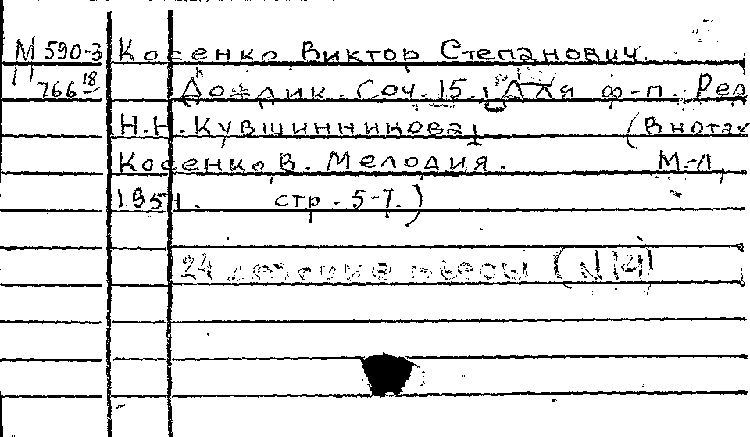 М 590-3 Косенко Виктор Степанович.
766 18 Дождик. Соч. 15. Для ф-п. Ред
Н.Н. Кувшинникова. (В нотах
Косенко В. Мелодия. М.-Л,
1951. стр. 5-7.)
24 детские пьесы (N 14)